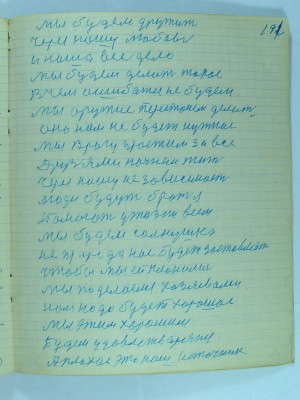 191
мы будем дружит
через нашу любовь
и наша все дело
мы будем делат такое
В чем ошибати не будем
мы оружие перестанем делат
оно нам не будет нужное
мы Врагу простим за все
Друзями начнем жит
Через нашу независимост
люди будут братя
помогат уважат всем
мы будем
не природа нас будет заставлят
чтобы мы ее
мы поделаемся хозяевами
нам надо будет хорошое
мы этим хорошим
Будем удовлетворены
А плохое это наш источник